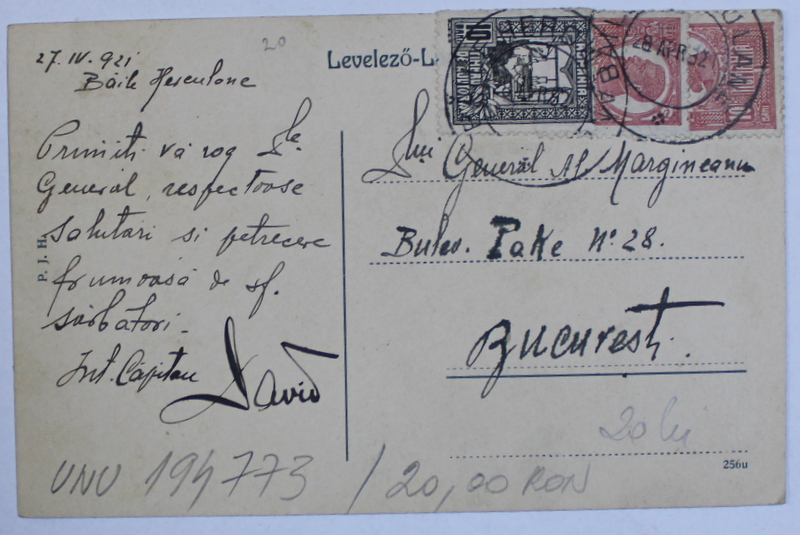 27. IV. 921
Băile Herculane
20
Levelező-L
Primiti vă rog
General, respectoase
salutări si petrecere
frumoasă de sf.
sărbători.
Int. Căpitan
David
P. J. H.
General Al Margineanu
Bulev. Pake Nº 28.
Bucuresti.
20 lei
256u
UNU 194773 / 20,00 RON